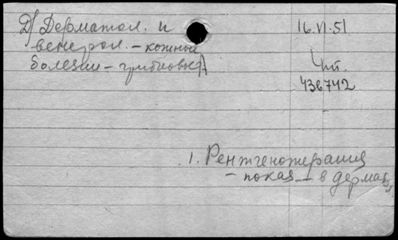 Д/ Дерматол. и
венерол. – кожные
болезни – грибковые
16.VI.51
Чит
436742
1. Рентгенотерапия
– показ – в дермат.